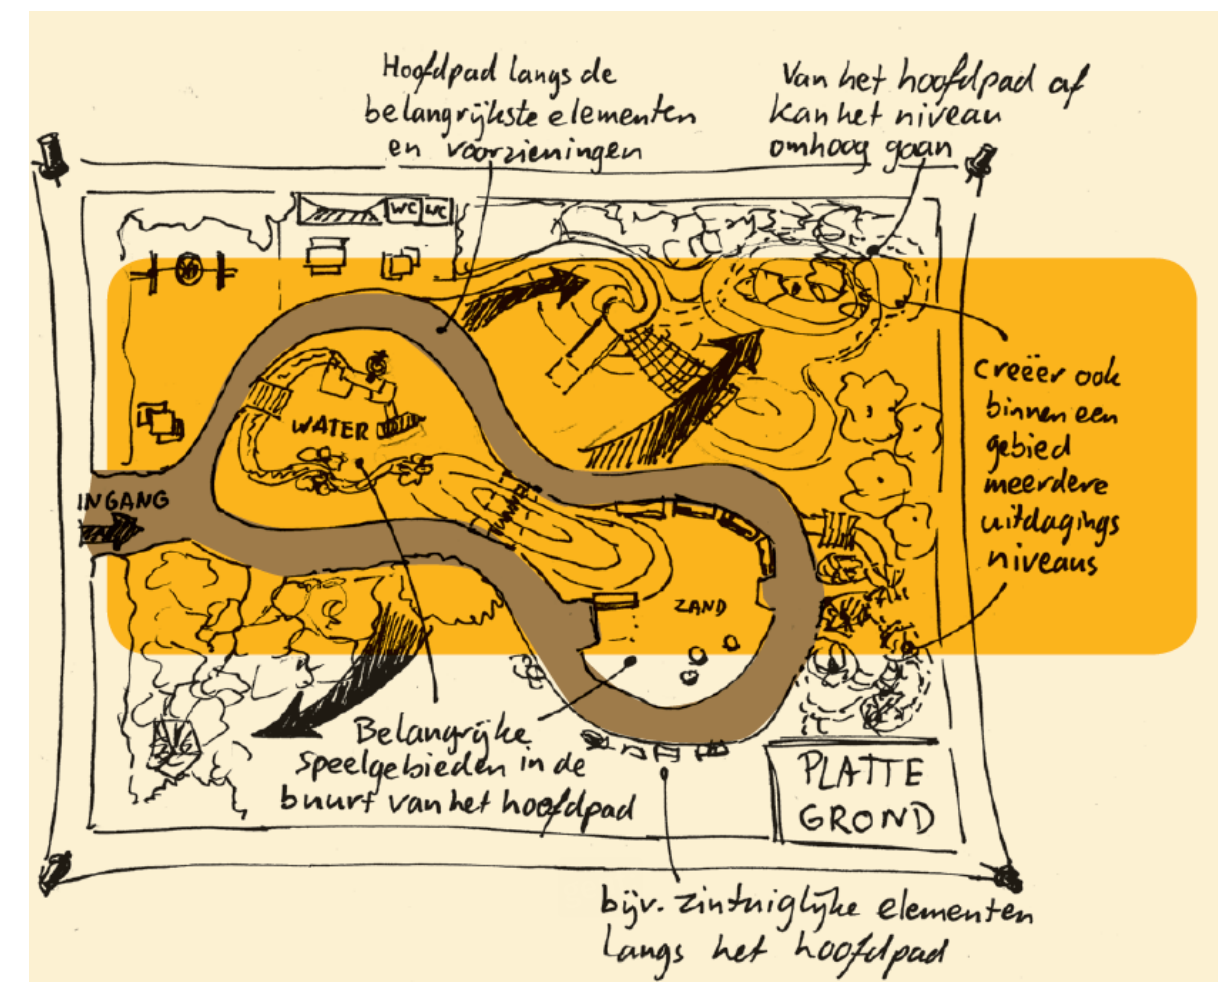 Hoofdpad langs de
belangrijkste elementen
en voorzieningen
Van het hoofdpad af
kan het niveau
omhoog gaan
WC WC
creëer ook
binnen een
gebied
meerdere
uitdagings
niveaus
WATER
INGANG
TUNNEL
ZAND
Belangrijke
speelgebieden in de
buurt van het hoofdpad
PLATTE
GROND
bijv. zintuiglijke elementen
langs het hoofdpad